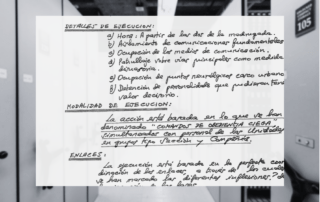 DETALLES DE EJECUCION:
a) Hora: A partir de las dos de la madrugada.
b) Aislamiento de comunicaciones fundamentales
c) Ocupación de los medios de comunicación.
d) Patrullaje sobre vías principales como medida
disuasoria.
e) Ocupación de puntos neurálgicos casco urbano
f) Detención de personalidades que pudieran tener
valor decisorio.
MODALIDAD DE EJECUCION:
La acción está basada en lo que se han
denominado "COMANDOS DE OBEDIENCIA CIEGA"
simultaneados con personal de las Unidades
en grupos tipo Sección y Compañía.
ENLACES:
La ejecución está basada en la perfecta coor
dinación de los enlaces, a través de los cuales
se han marcado las diferentes
105